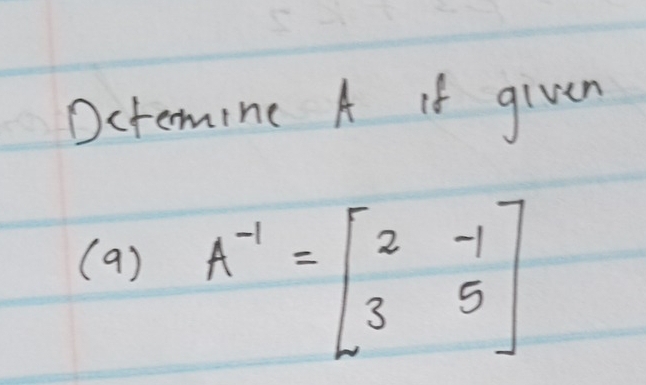 Determine A if given
(a) A⁻¹ = [2 -1
3 5]